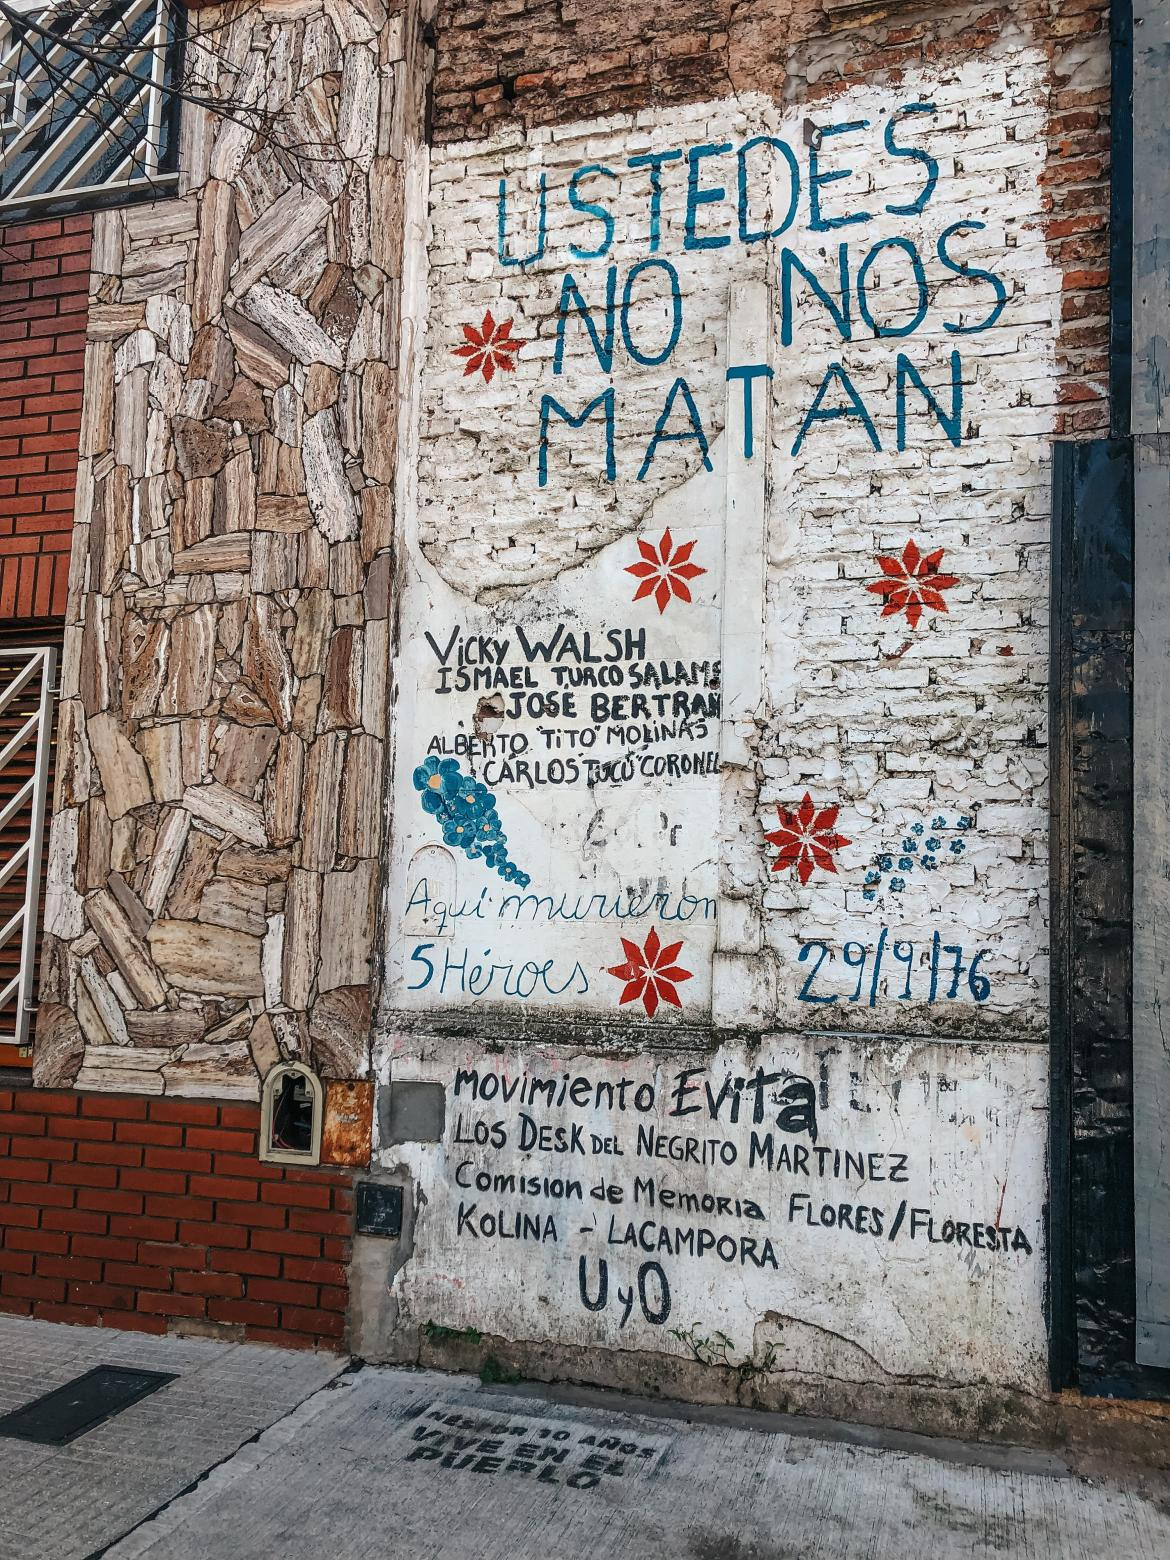 USTEDES
NO NOS
MATAN
VICKY WALSH
ISMAEL TURCO SALAME
JOSE BERTRAN
ALBERTO "TITO" MOLINAS
CARLOS TUCU CORONEL
Aquí murieron
5 Héroes
29/9/76
MOVIMIENTO EVITA
LOS DESK DEL NEGRITO MARTINEZ
COMISION de MEMORIA FLORES/FLORESTA
KOLINA - LACAMPORA
UyO
NÉSTOR 10 AÑOS
VIVE EN EL
PUEBLO